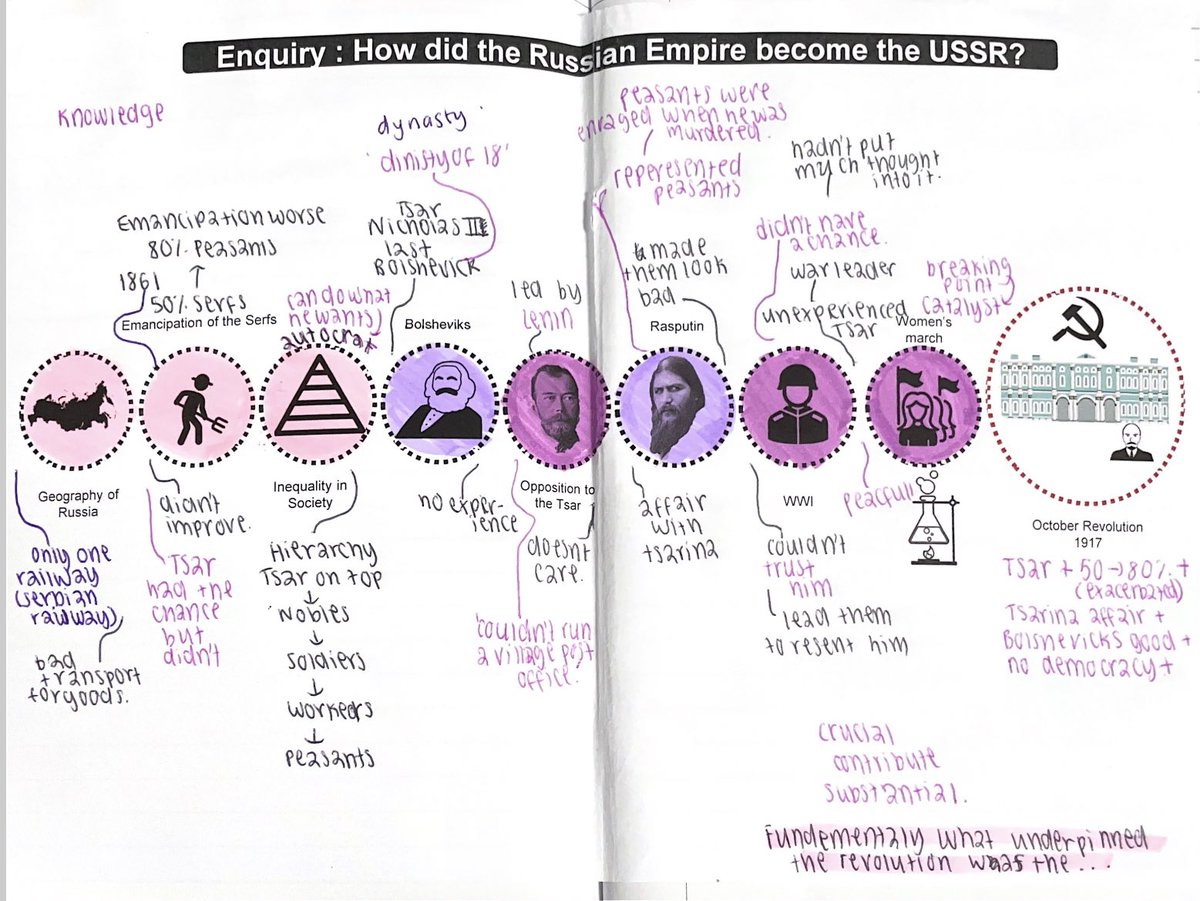 Enquiry : How did the Russian Empire become the USSR?
Knowledge
dynasty
'dinisty of 18'
Emancipation worse
80% peasants
1861
50% serfs
Emancipation of the Serfs
(and what
he wants)
autocrat
Tsar
Nicholas II
last
Bolshevick
Bolsheviks
led by
Lenin
peasants were
enraged when he was
murdered.
reperesented
peasants
made
them look
bad
Rasputin
hadn't put
much thought
into it.
didn't have
a chance.
war leader
unexperienced
Tsar
breaking
point
catalyst
Women's
march
Geography of
Russia
only one
railway
(serbian
railway)
bad
transport
for goods.
didn't
improve.
Tsar
had the
chance
but
didn't
Inequality in
Society
Hierarchy
Tsar on top
Nobles
soldiers
workers
peasants
no exper-
ience
Opposition to
the Tsar
doesnt
care.
couldn't run
a village post
office.
affair
with
tsarina
WWI
couldn't
trust
him
lead them
to resent him
peacfull
October Revolution
1917
Tsar + 50 → 80% +
(exacerbated)
Tsarina affair +
Bolshevicks good +
no democracy +
crucial
contribute
substantial.
Fundementaly what underpinned
the revolution was the...